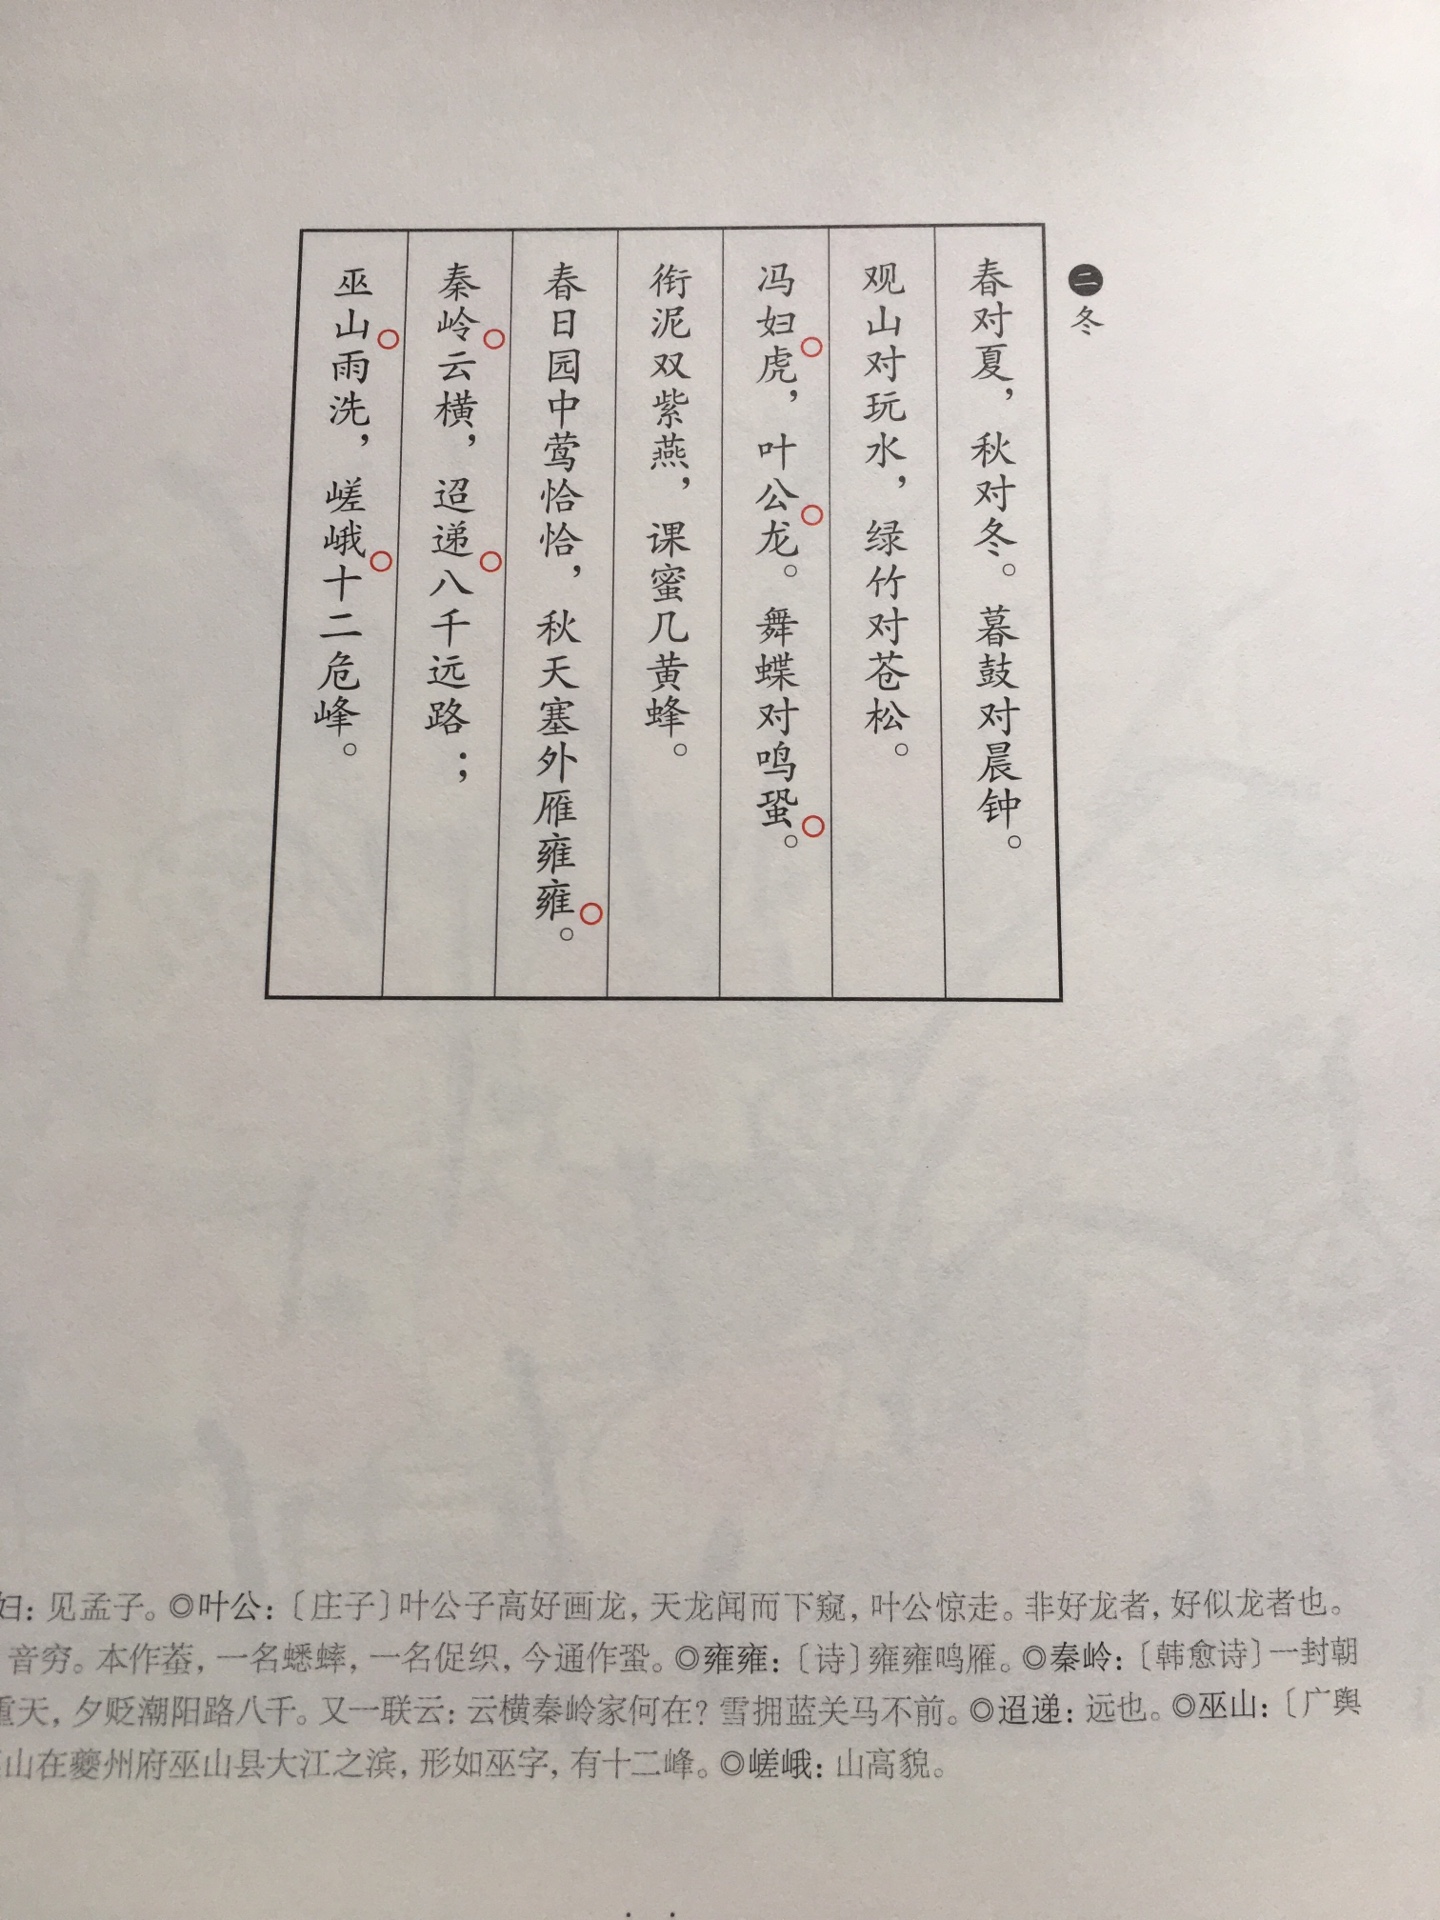 二 冬
春对夏，秋对冬。暮鼓对晨钟。
观山对玩水，绿竹对苍松。
冯妇虎，叶公龙。舞蝶对鸣蛩。
衔泥双紫燕，课蜜几黄蜂。
春日园中莺恰恰，秋天塞外雁雍雍。
秦岭云横，迢递八千远路；
巫山雨洗，嵯峨十二危峰。
妇：见孟子。◎叶公：〔庄子〕叶公子高好画龙，天龙闻而下窥，叶公惊走。非好龙者，好似龙者也。
音穷。本作蛬，一名蟋蟀，一名促织，今通作蛩。◎雍雍：〔诗〕雍雍鸣雁。◎秦岭：〔韩愈诗〕一封朝
重天，夕贬潮阳路八千。又一联云：云横秦岭家何在？雪拥蓝关马不前。◎迢递：远也。◎巫山：〔广舆
山在夔州府巫山县大江之滨，形如巫字，有十二峰。◎嵯峨：山高貌。